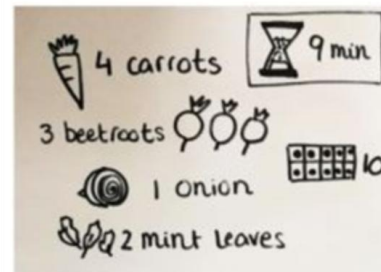 4 carrots
9 min
3 beetroots
10
1 onion
2 mint leaves